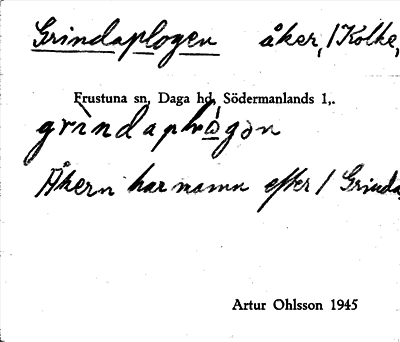 Grindaplogen åker, /Kolke,
Frustuna sn, Daga hd, Södermanlands l,.
Åkern har namn efter / Grinda
Artur Ohlsson 1945